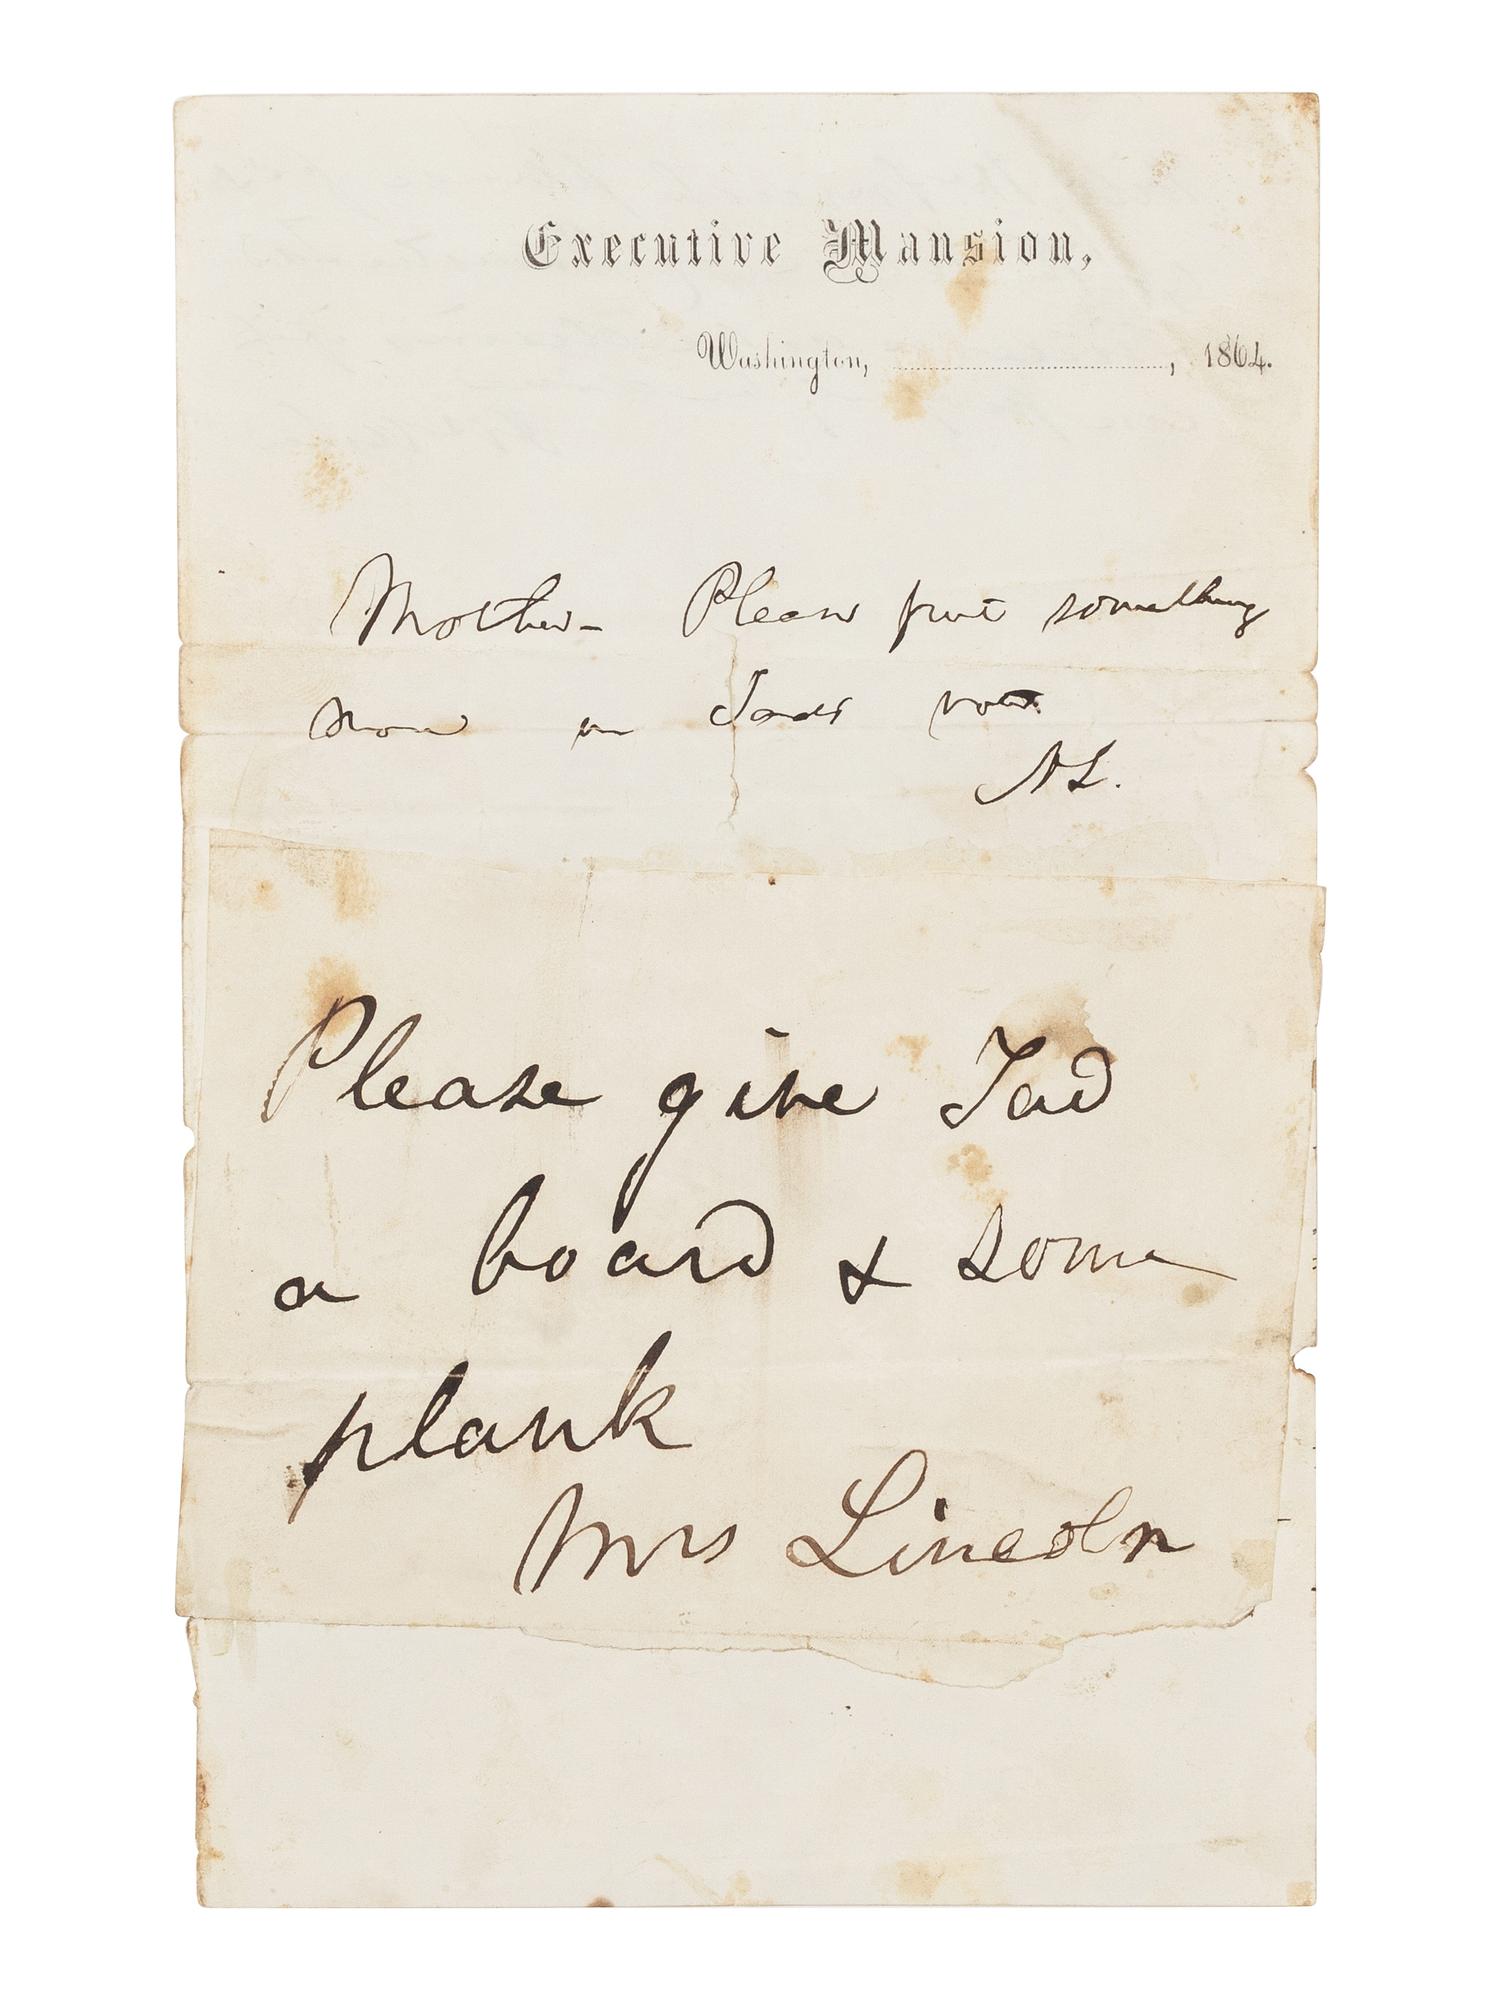 Executive Mansion,
Washington, , 1864.
Mother- Please put something
more on Tads
A L.
Please give Tad
a board & some
plank
Mrs Lincoln